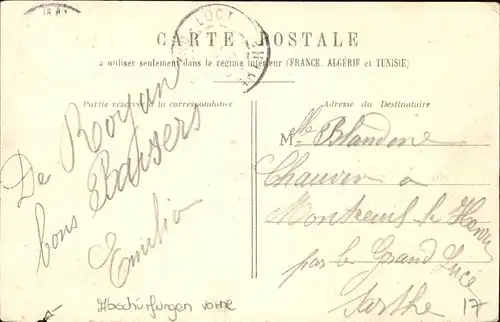 CARTE POSTALE
à utiliser seulement dans le régime intérieur (FRANCE, ALGÉRIE et TUNISIE)
Partie réservée à la correspondance
Adresse du Destinataire
De Royan
bons Baisers
Emilia
Mlle Blandine
Chauvin à
Montreuil le Henri
par le Grand Lucé
Sarthe
Abschürfungen vorne
17